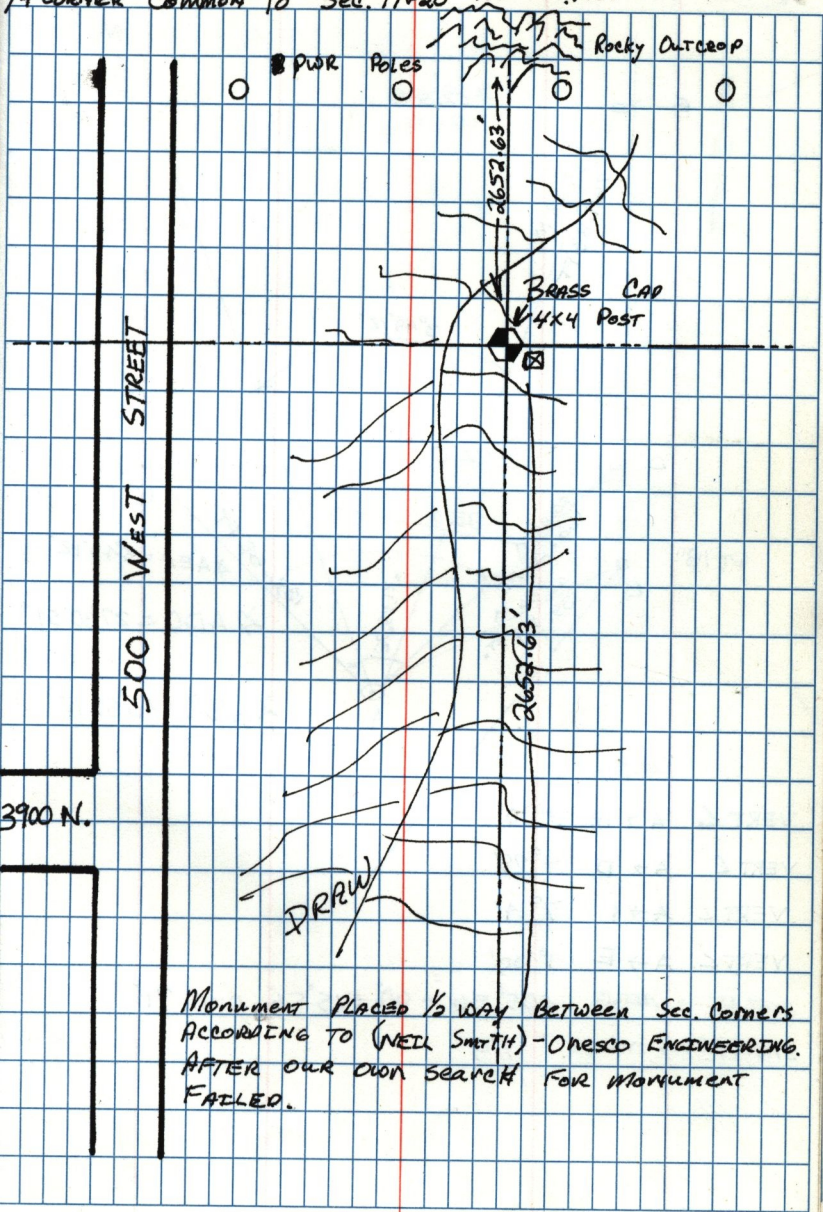 1/4 CORNER COMMON TO SEC. 17+20
ROCKY OUTCROP
PWR POLES
2652.63'
BRASS CAP
4X4 POST
500 WEST STREET
2652.63'
3900 N.
DRAW
MONUMENT PLACED 1/2 WAY BETWEEN SEC. CORNERS
ACCORDING TO (NEIL SMITH)-ONESCO ENGINEERING.
AFTER OUR OWN SEARCH FOR MONUMENT
FAILED.